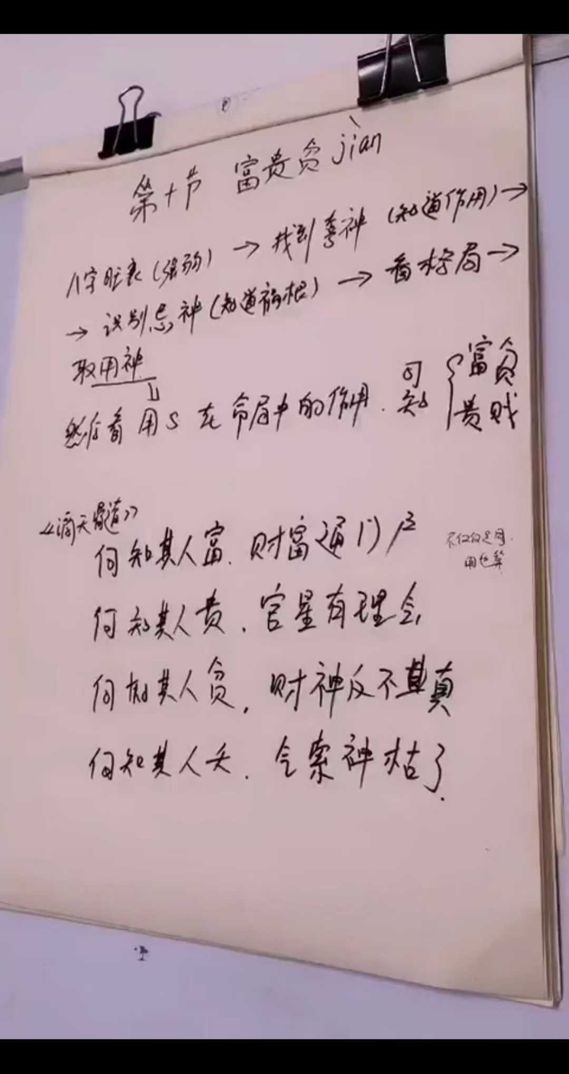 第十节 富贵贫jiàn
八字旺衰(强弱) → 找到喜神(知道作用) →
→ 识别忌神(知道病根) → 看格局 →
取用神
然后看用S在命局中的作用.可知{富贫 贵贱
《滴天髓》
何知其人富.财富通门户
何知其人贵.官星有理会
何知其人贫.财神反不真
何知其人夭.气索神枯了.